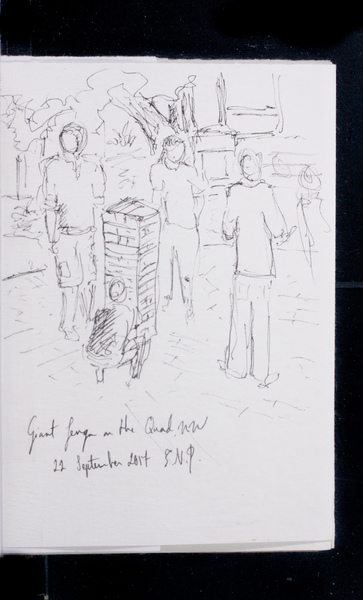 Giant Jenga on the Quad, NW
22 September 2017 S.N.P.